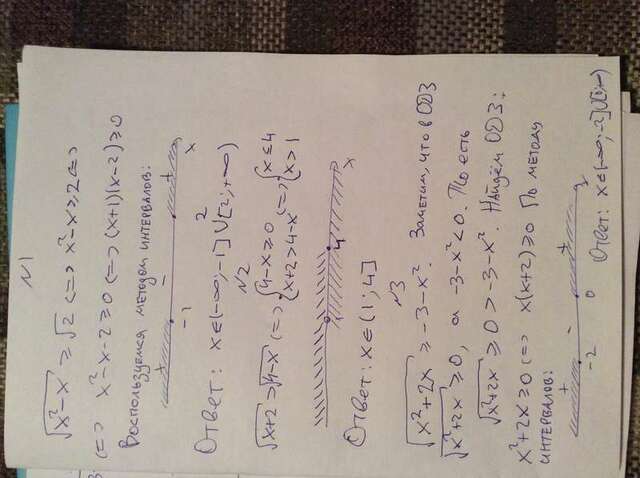 N1
√(x²-x) ≥ √2 <=> x²-x≥2 <=>
<=> x²-x-2≥0 <=> (x+1)(x-2)≥0
Воспользуемся методом интервалов:
+ - +
-1 2 x
Ответ: x∈(-∞;-1]∪[2;+∞)
N2
√(x+2) > √(4-x) <=> {4-x≥0 x+2>4-x <=> {x≤4 x>1
1 4 x
Ответ: x∈(1;4]
N3
√(x²+2x) ≥ -3-x². Заметим, что в ОДЗ
√(x²+2x) ≥0, а -3-x²<0. То есть
√(x²+2x) ≥0 > -3-x². Найдём ОДЗ:
x²+2x≥0 <=> x(x+2)≥0 По методу
интервалов:
+ - +
-2 0
Ответ: x∈(-∞;-2]∪[0;+∞)